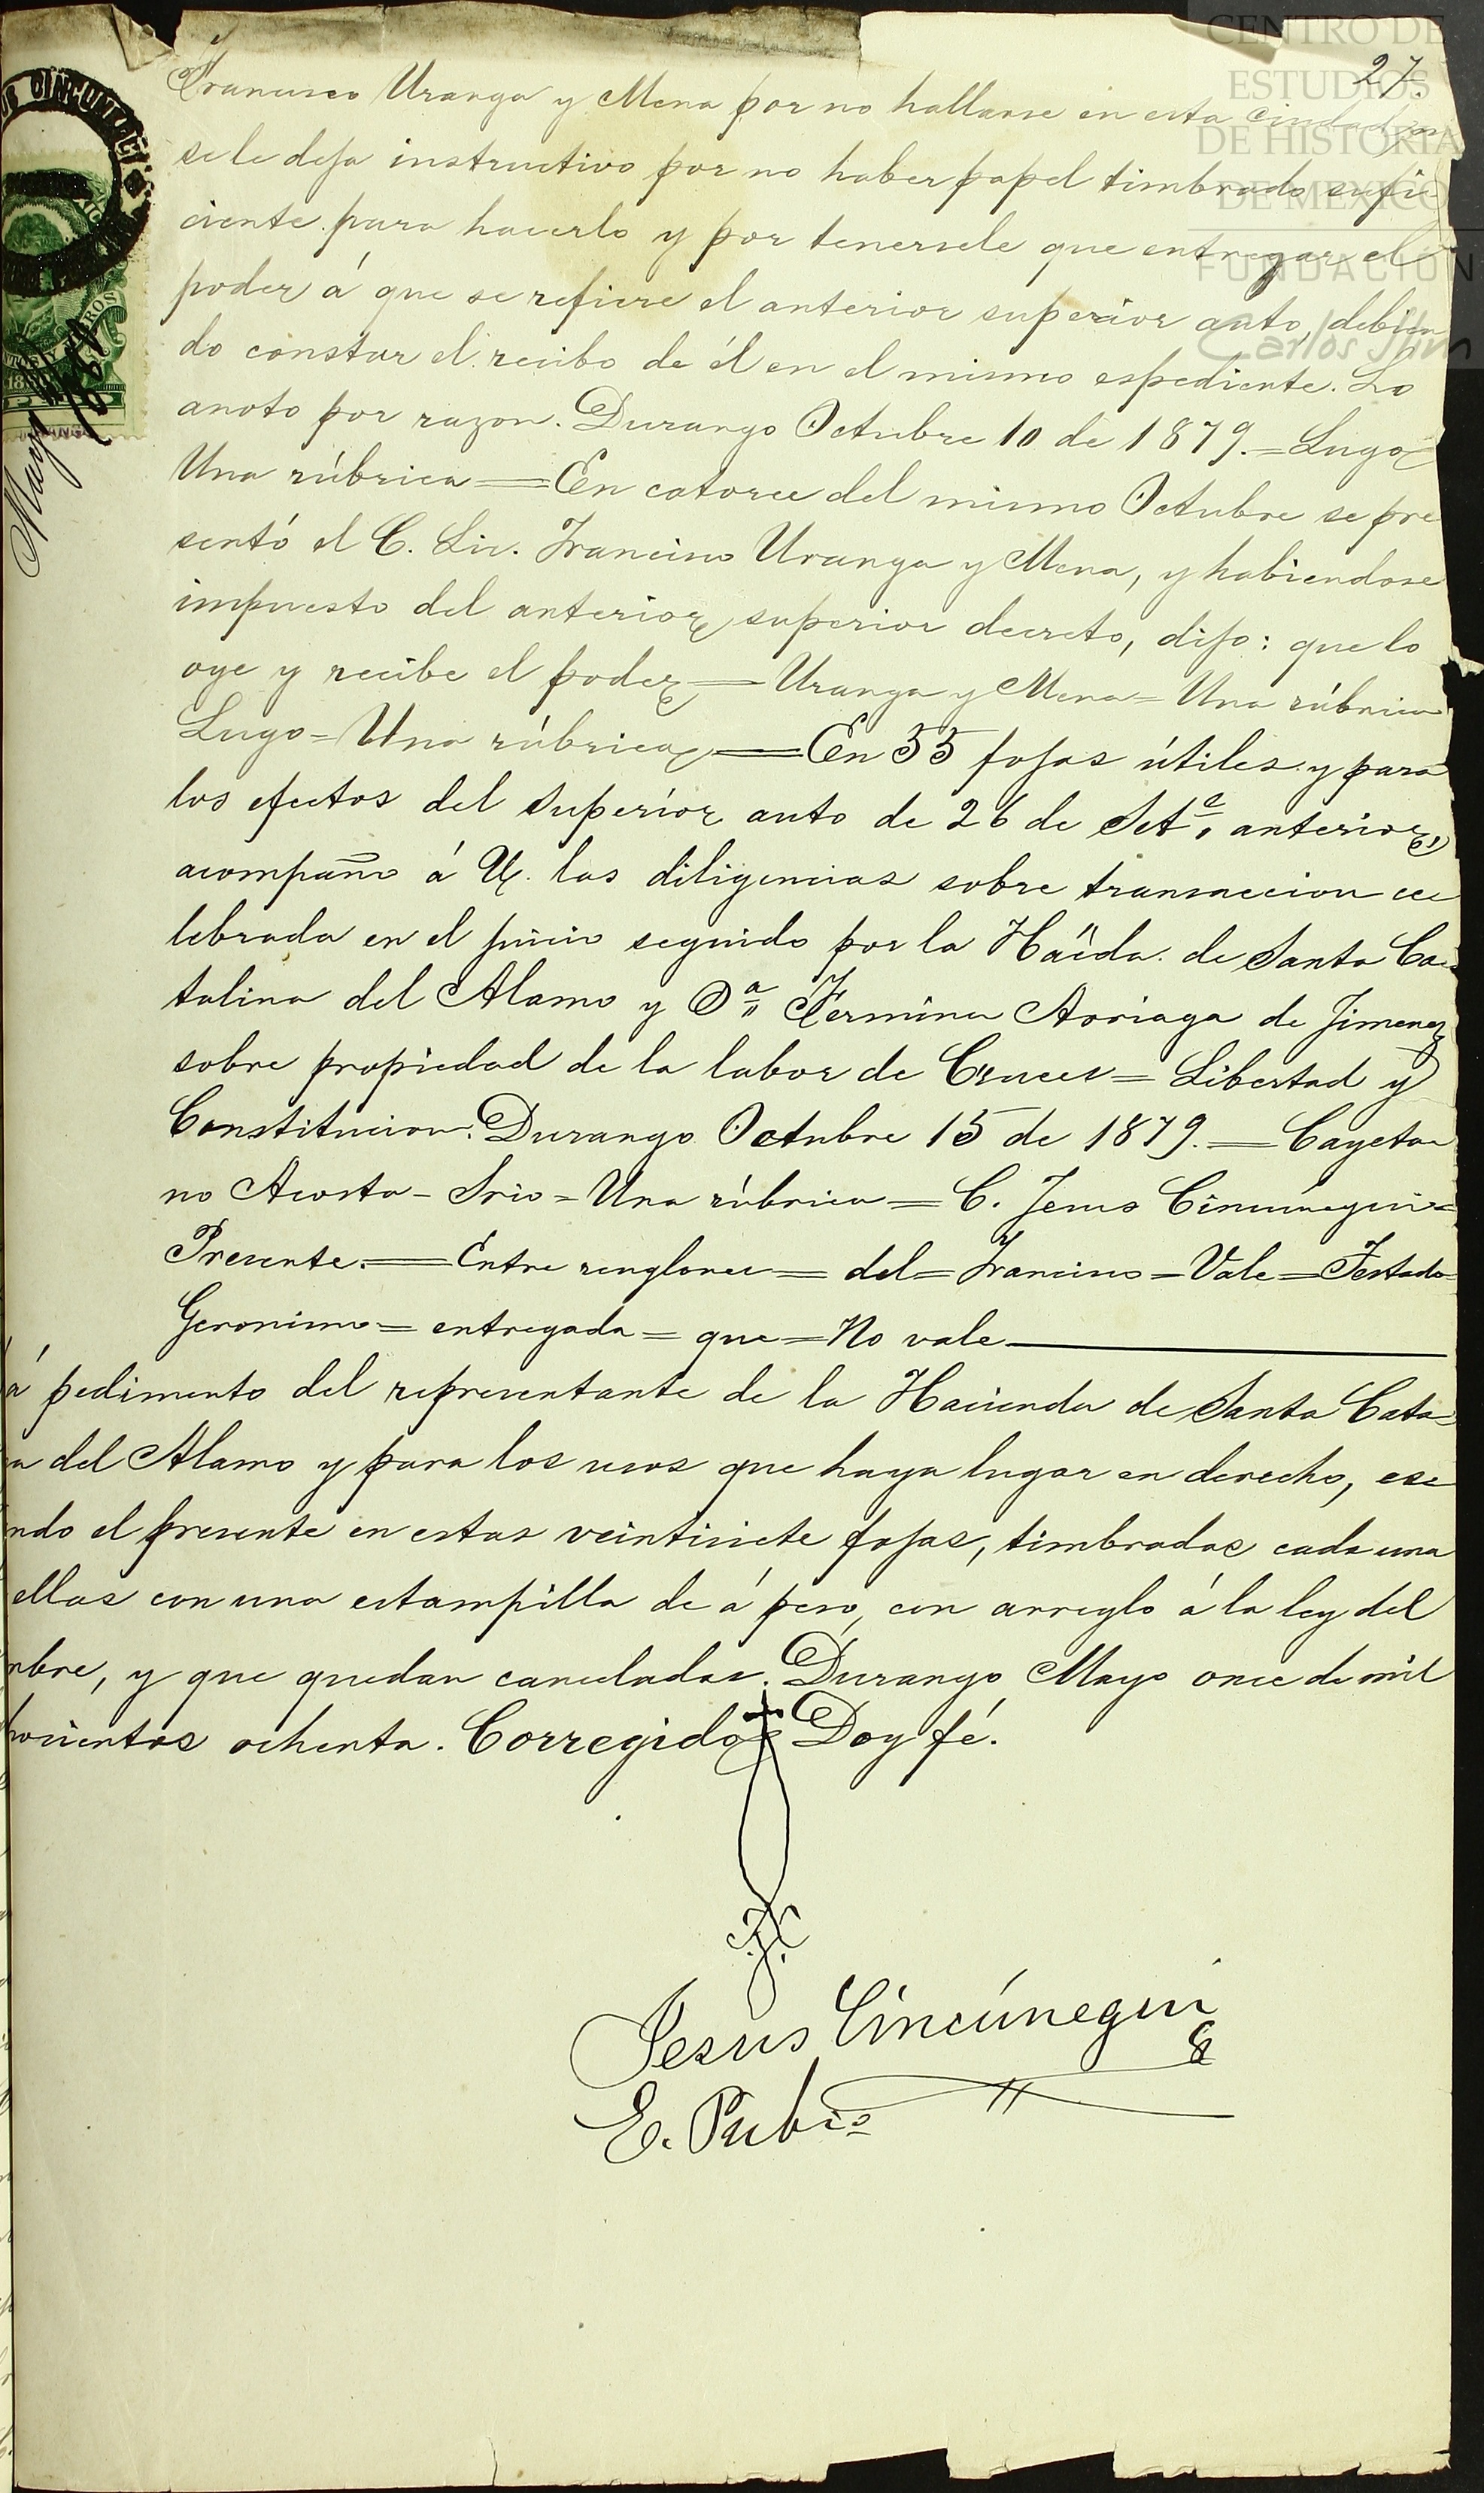 27.
Francisco Uranga y Mena por no hallarse en esta Ciudad, no
se le deja instructivo por no haber papel timbrado sufi-
ciente para hacerlo y por tenersele que entregar el
poder á que se refiere el anterior superior auto, debien
do constar el recibo de él en el mismo espediente. Lo
anoto por razon. Durango Octubre 10 de 1879. = Lugo
Una rúbrica = En catorce del mismo Octubre se pre
sentó el C. Lic. Francisco Uranga y Mena, y habiendose
impuesto del anterior superior decreto, dijo: que lo
oye y recibe el poder = Uranga y Mena = Una rúbrica
Lugo = Una rúbrica = En 55 fojas útiles y para
los efectos del Superior auto de 26 de Set.e anterior,
acompaño á U. las diligencias sobre transaccion ce
lebrada en el juicio seguido por la Haĉda. de Santa Ca-
talina del Alamo y D.a Fermina Arriaga de Jimenez
sobre propiedad de la labor de Cruces = Libertad y
Constitucion. Durango Octubre 15 de 1879. = Cayeta
no Acosta - Srio = Una rúbrica = C. Jesus Cincúnegui =
Presente. = Entre renglones = del = Francisco = Vale = Testado
Geronimo = entregada = que = No vale
á pedimento del representante de la Hacienda de Santa Cata-
a del Alamo y para los usos que haya lugar en derecho, es
ndo el presente en estas veintisiete fojas, timbradas cada una
ellas con una estampilla de á peso, con arreglo á la ley del
mbre, y que quedan canceladas. Durango Mayo once de mil
hocientos ochenta. Corregido Doy fé.
Jesus Cincúnegui
E. Pub.co
Mayo
CENTRO DE
ESTUDIOS
DE HISTORIA
DE MEXICO
FUNDACION
Carlos Slim